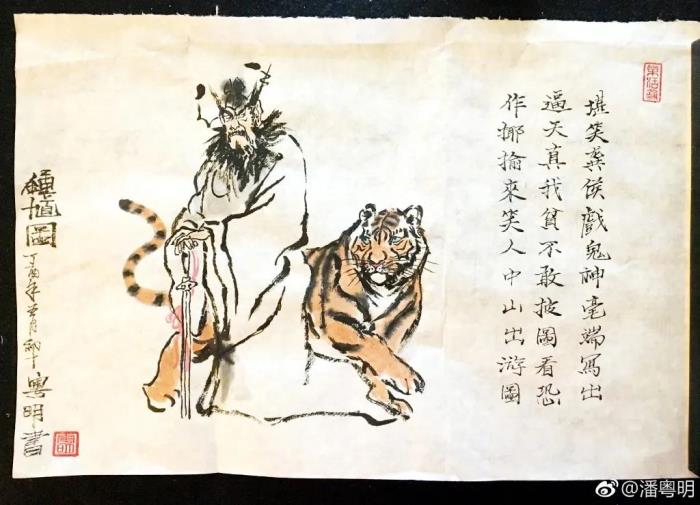 堪笑龔侯戲鬼神毫端寫出
逼天真我貧不敢披圖看恐
作揶揄來笑人中山出游圖
鍾馗圖
丁酉年
粤明書
@潘粤明